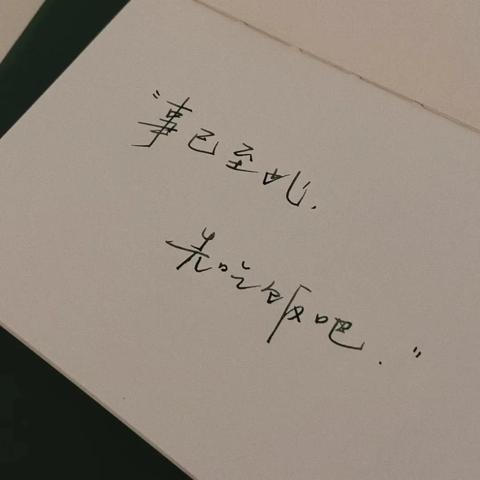 “事已至此.
先吃饭吧.”